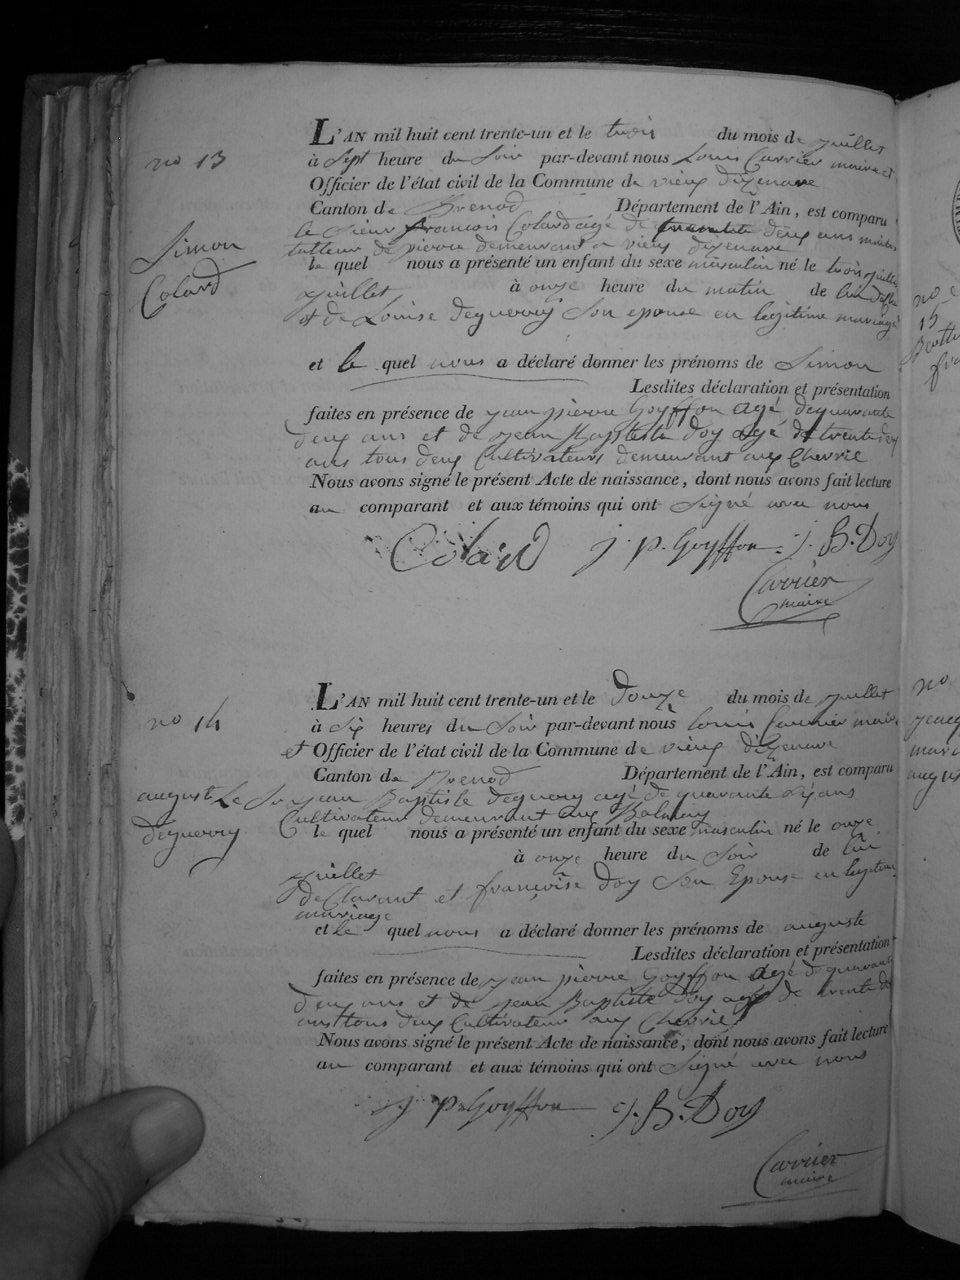 no 13
Simon
Colard
L'AN mil huit cent trente-un et le trois du mois de juillet
à Sept heure du Soir par-devant nous Louis Carrier maire et
Officier de l'état civil de la Commune de vieux d'izenave
Canton de Brenod Département de l'Ain, est comparu
le Sieur francois Colard agé de deux ans
de pierre demeurant a vieux dizenave
le quel nous a présenté un enfant du sexe masculin né le trois juillet
juillet à onze heure du matin de lui
et de Louise deguerry Son epouse en legitime mariage
et le quel nous a déclaré donner les prénoms de Simon
Lesdites déclaration et présentation
faites en présence de jean pierre Goyffon agé de quarante
deux ans et de jean Baptiste Doy agé de trente deux
ans tous deux Cultivateurs demeurant aux Chevril
Nous avons signé le présent Acte de naissance, dont nous avons fait lecture
au comparant et aux témoins qui ont Signé avec nous
Colard j. p. Goyffon j. B. Doy
Carrier
maire
no 14
auguste
deguerry
L'AN mil huit cent trente-un et le douze du mois de juillet
à Six heures du Soir par-devant nous louis Carrier maire
et Officier de l'état civil de la Commune de vieux d'izenave
Canton de Brenod Département de l'Ain, est comparu
Le Sr jean Baptiste deguerry agé de quarante ans
Cultivateur demeurant aux
le quel nous a présenté un enfant du sexe masculin né le onze
juillet à onze heure du Soir de lui
declarant et françoise Doy Son Epouse en legitime
mariage
et le quel nous a déclaré donner les prénoms de auguste
Lesdites déclaration et présentation
faites en présence de jean pierre Goyffon agé de quarante
deux ans et de jean Baptiste Doy agé de trente deux
ans tous deux Cultivateur aux Chevril
Nous avons signé le présent Acte de naissance, dont nous avons fait lecture
au comparant et aux témoins qui ont Signé avec nous
j p. Goyffon j. B. Doy
Carrier
maire
no
15
no